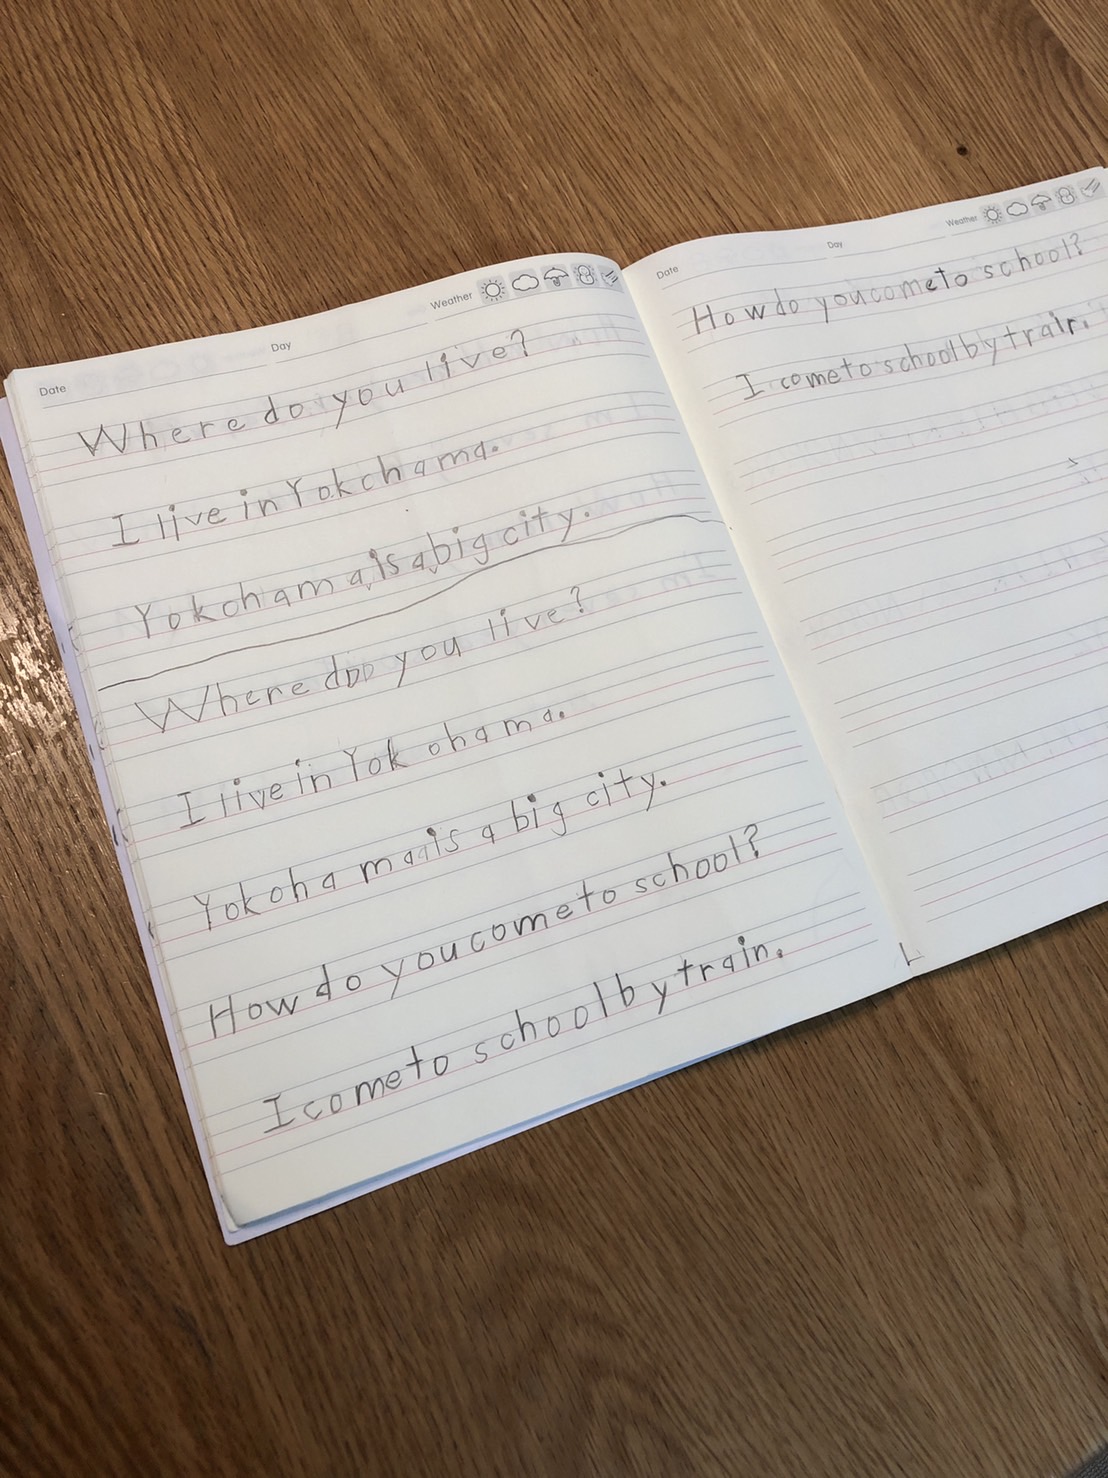 Date Day Weather
Where do you live?
I live in Yokohama.
Yokohama is a big city.
Where do you live?
I live in Yokohama.
Yokohama is a big city.
How do you come to school?
I come to school by train.
Date Day Weather
How do you come to school?
I come to school by train.